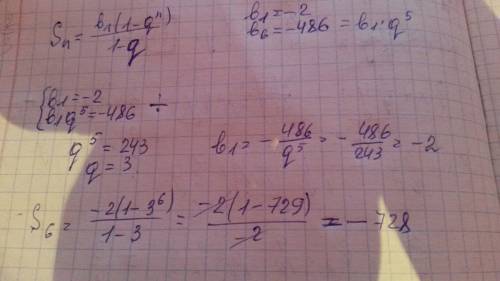 Sn = b1(1-q^n) / 1-q
b1 = -2
b6 = -486 = b1·q^5
{b1 = -2
b1q^5 = -486 ÷
q^5 = 243
q = 3
b1 = -486/q^5 = -486/243 = -2
S6 = -2(1-3^6) / 1-3 = -2(1-729) / -2 = -728